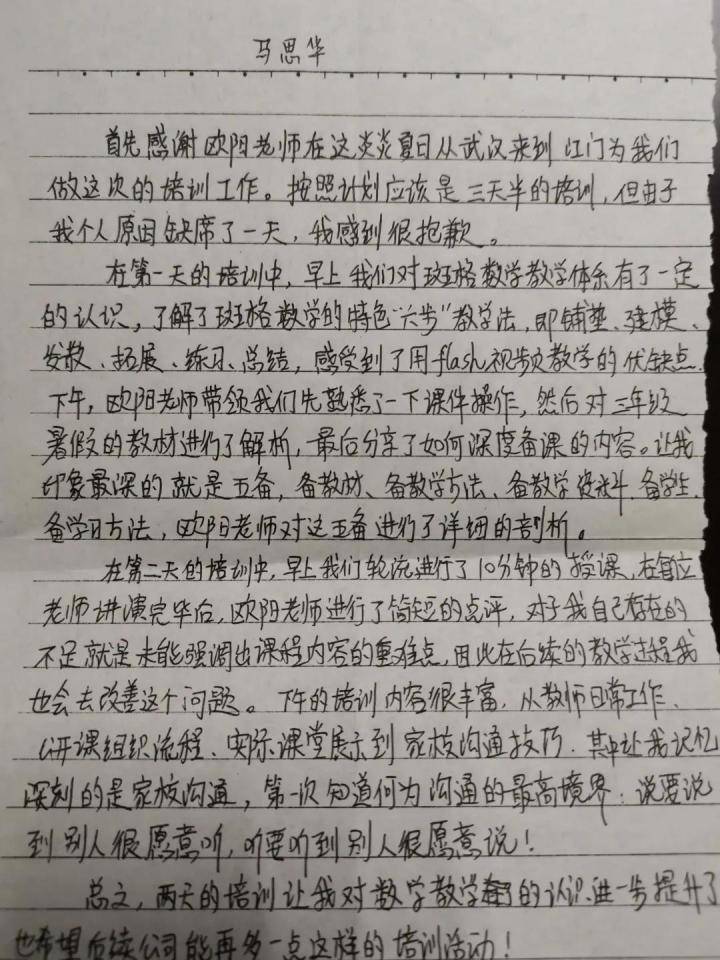 马思华
首先感谢欧阳老师在这炎炎夏日从武汉来到江门为我们
做这次的培训工作。按照计划应该是三天半的培训,但由于
我个人原因缺席了一天,我感到很抱歉。
在第一天的培训中,早上我们对斑格数学教学体系有了一定
的认识,了解了斑格数学的特色“六步”教学法,即铺垫、建模、
发散、拓展、练习、总结,感受到了用flash视频教学的优缺点.
下午,欧阳老师带领我们先熟悉了一下课件操作,然后对三年级
暑假的教材进行了解析,最后分享了如何深度备课的内容。让我
印象最深的就是五备,备教材、备教学方法、备教学资料、备学生、
备学习方法,欧阳老师对这五备进行了详细的剖析。
在第二天的培训中,早上我们轮流进行了10分钟的授课,在每位
老师讲演完毕后,欧阳老师进行了简短的点评,对于我自己存在的
不足就是未能强调出课程内容的重难点,因此在后续的教学过程我
也会去改善这个问题。下午的培训内容很丰富,从教师日常工作、
公开课组织流程、实际课堂展示到家校沟通技巧.其中让我记忆
深刻的是家校沟通,第一次知道何为沟通的最高境界:说要说
到别人很愿意听,听要听到别人很愿意说!
总之,两天的培训让我对数学教学的认识进一步提升了
也希望后续公司能再多一点这样的培训活动!